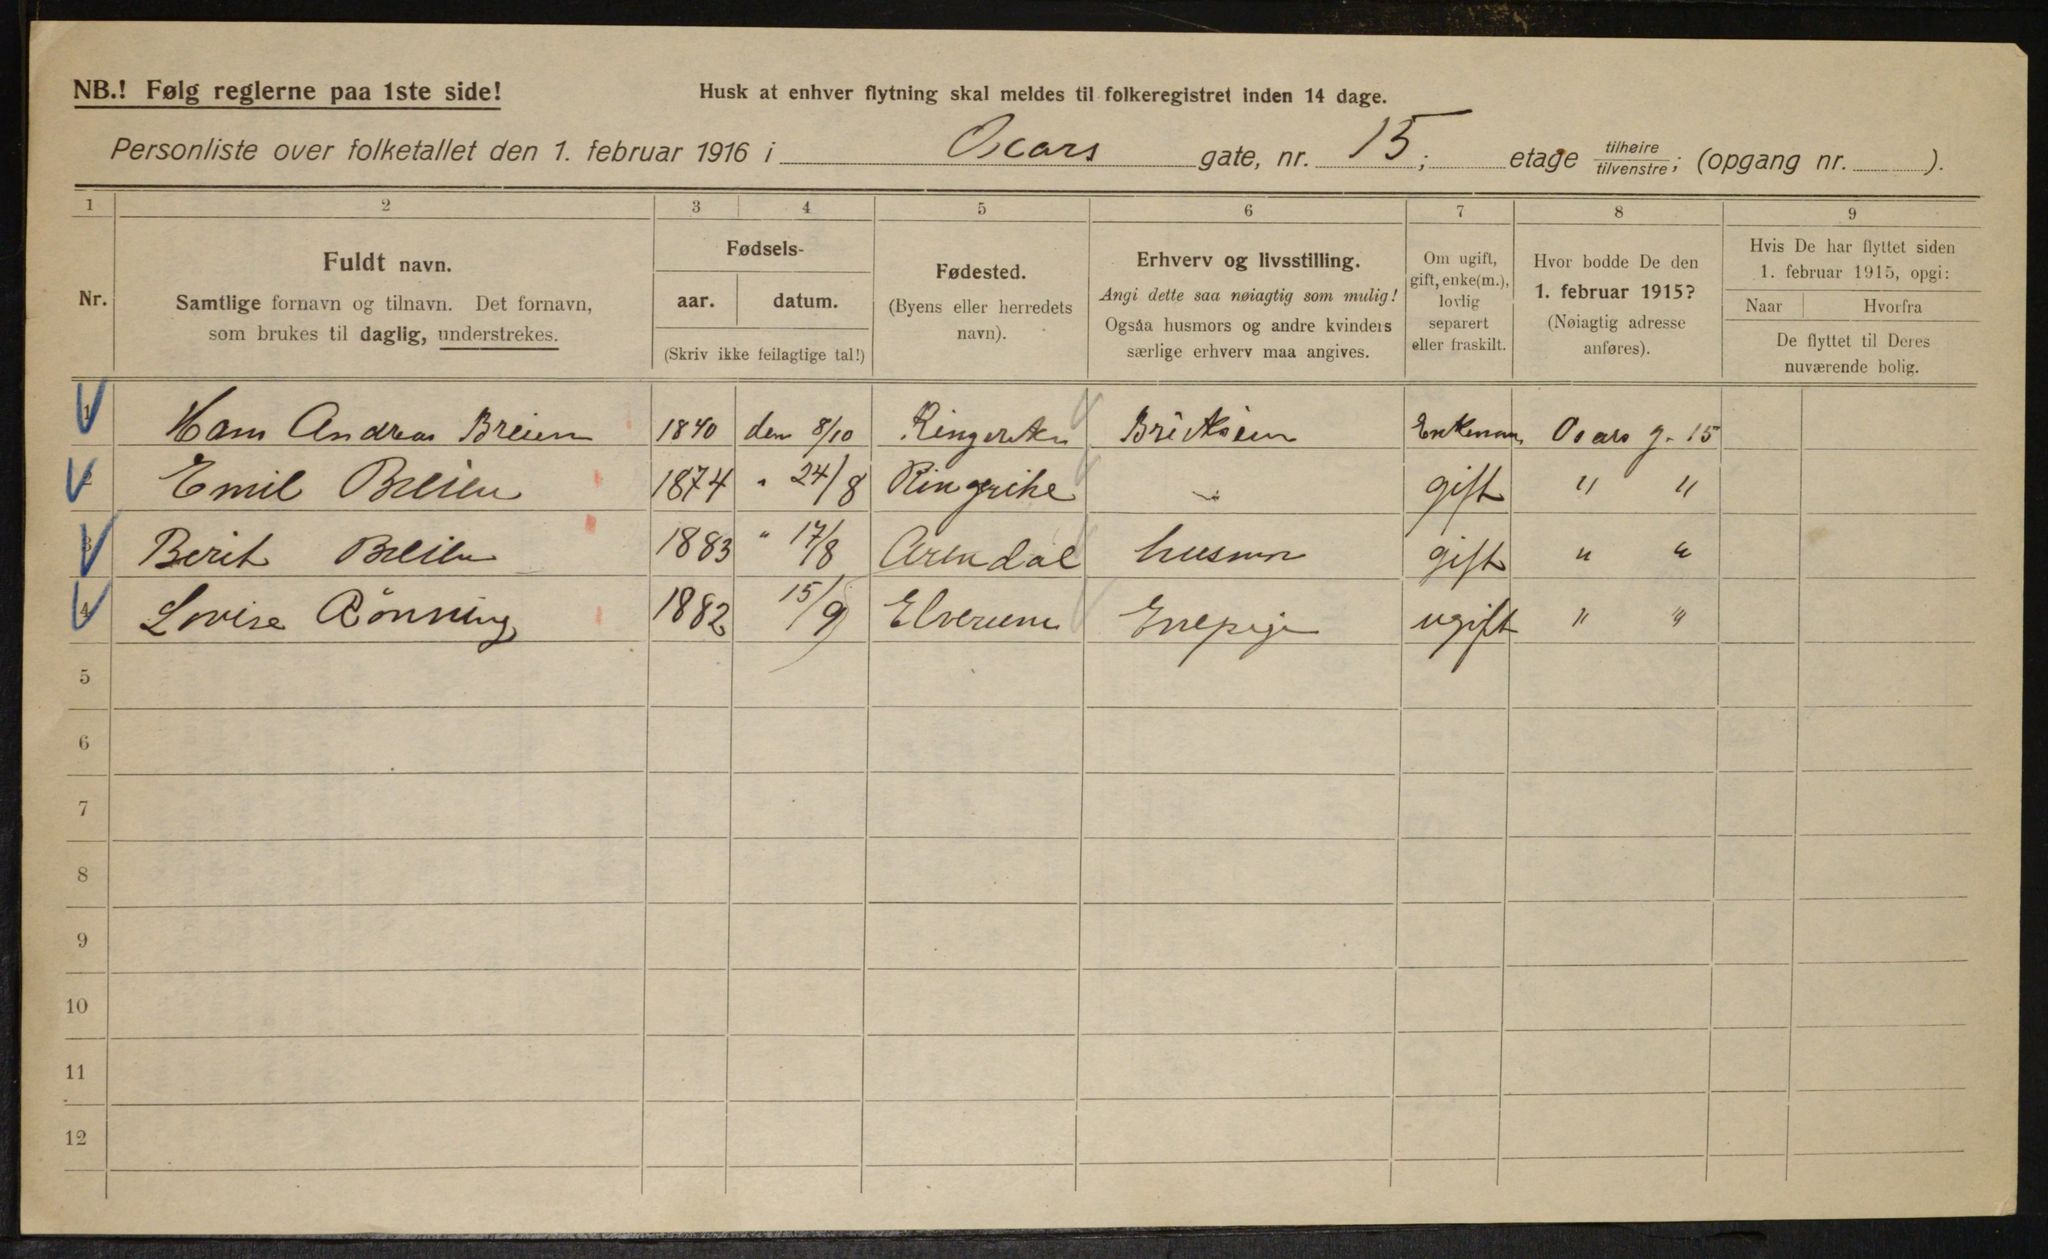 NB.! Følg reglerne paa 1ste side!
Husk at enhver flytning skal meldes til folkeregistret inden 14 dage.
Personliste over folketallet den 1. februar 1916 i Oscars gate, nr. 15; etage tilhøire tilvenstre; (opgang nr. ).
1 2 3 4 5 6 7 8 9
Nr.
Fuldt navn.
Samtlige fornavn og tilnavn. Det fornavn,
som brukes til daglig, understrekes.
Fødsels-
aar. datum.
(Skriv ikke feilagtige tal!)
Fødested.
(Byens eller herredets
navn).
Erhverv og livsstilling.
Angi dette saa nøiagtig som mulig!
Ogsaa husmors og andre kvinders
særlige erhverv maa angives.
Om ugift,
gift, enke(m.),
lovlig
separert
eller fraskilt.
Hvor bodde De den
1. februar 1915?
(Nøiagtig adresse
anføres).
Hvis De har flyttet siden
1. februar 1915, opgi:
Naar Hvorfra
De flyttet til Deres
nuværende bolig.
1 Hans Andreas Breien 1840 den 8/10 Ringerike Enkeman Oscars g. 15
2 Emil Breien 1874 " 24/8 Ringerike " gift " "
3 Berit Breien 1883 " 17/8 Arendal husmor gift " "
4 Lovise Rönning 1882 15/9 Elverum Enepige ugift " "
5
6
7
8
9
10
11
12